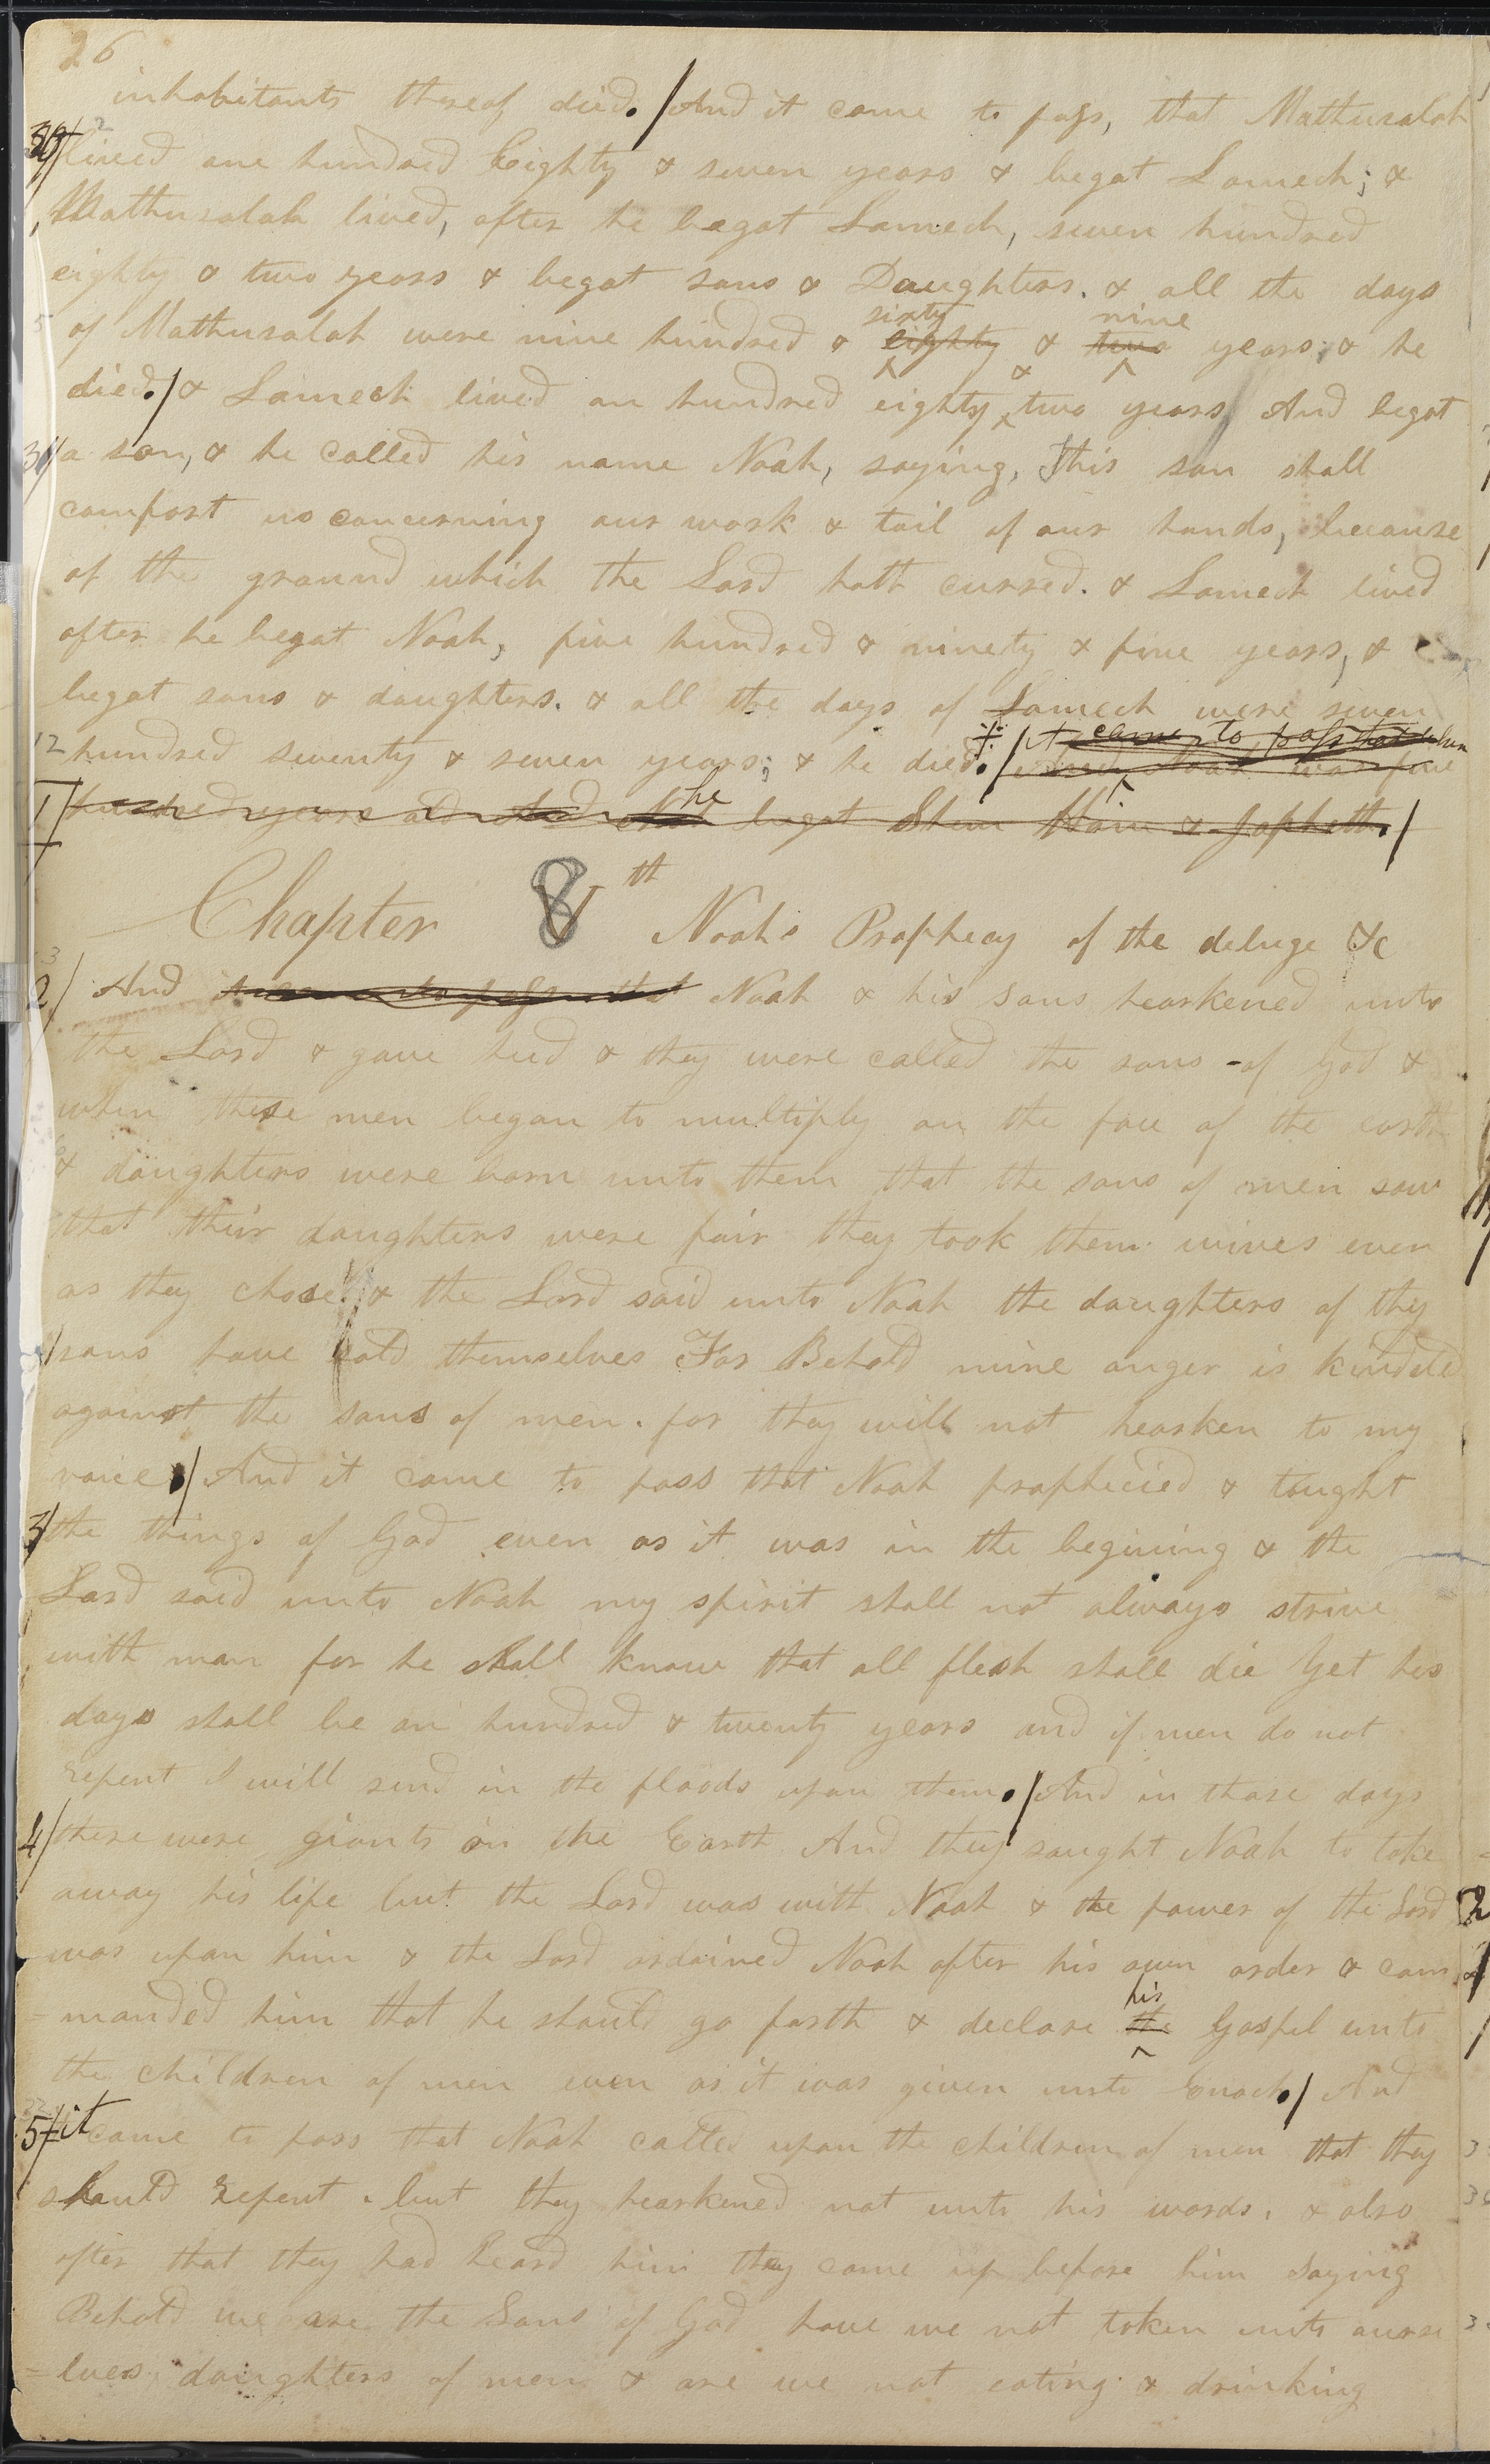 26
inhabitants thereof died. / And it came to pass, that Mathusalah
lived one hundred Eighty & seven years & begat Lamech; &
Mathusalah lived, after he begat Lamech, seven hundred
eighty & two years & begat sons & Daughters. & all the days
sixty nine
of Mathusalah were nine hundred & eighty & two years; & he
died. / & Lamech lived an hundred eighty & two years And begat
a son, & he called his name Noah, saying, This son shall
comfort us concerning our work & toil of our hands, because
of the ground which the Lord hath cursed. & Lamech lived
after he begat Noah, five hundred & ninety & five years, &
begat sons & daughters. & all the days of Lamech were seven
it came to pass that when
12 hundred seventy & seven years; & he died. / Noah was five
1 hundred years old he begat Shem Ham & Japheth. /
Chapter 8 th Noahs Prophecy of the deluge &c
2/ And it came to pass that Noah & his sons hearkened unto
the Lord & gave heed & they were called the sons of God &
when these men began to multiply on the face of the earth
& daughters were born unto them that the sons of men saw
that their daughters were fair they took them wives even
as they chose. & the Lord said unto Noah the daughters of thy
sons have sold themselves For Behold mine anger is kindeled
against the sons of men. for they will not hearken to my
voice. / And it came to pass that Noah prophecied & taught
3/ the things of God even as it was in the begining & the
Lord said unto Noah my spirit shall not always strive
with man for he shall know that all flesh shall die Yet his
days shall be an hundred & twenty years and if men do not
repent I will send in the floods upon them. / And in those days
4/ there were giants on the Earth And they saught Noah to take
away his life but the Lord was with Noah & the power of the Lord
was upon him & the Lord ordained Noah after his own order & com
his
=manded him that he should go forth & declare the Gospel unto
the children of men even as it was given unto Enoch. / And
5/ it came to pass that Noah called upon the children of men that they
should repent. but they hearkened not unto his words. & also
after that they had heard him they came up before him saying
Behold we are the Sons of God have we not taken unto ourse
=lves daughters of men & are we not eating & drinking